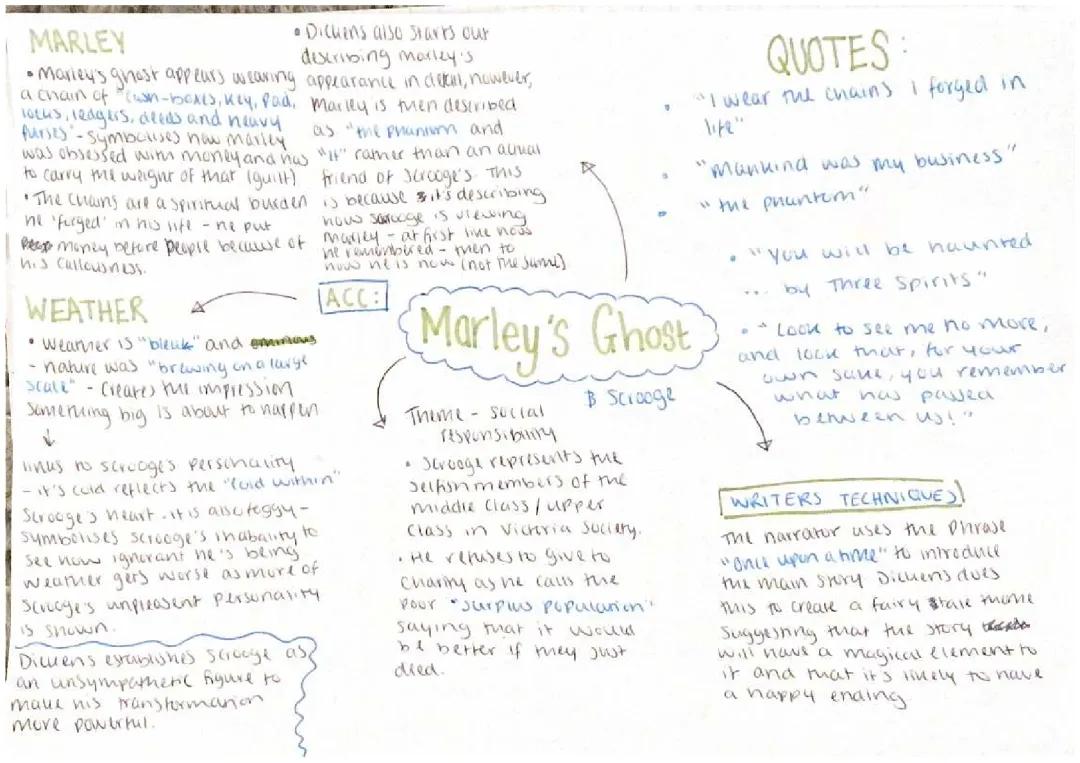 MARLEY
• Marley's ghost appears wearing
a chain of "cash-boxes, key, pad,
locks, ledgers, deeds and heavy
purses" - symbolises how marley
was obsessed with money and has
to carry the weight of that (guilt)
• The chains are a spiritual burden
he 'forged' in his life - he put
money before people because of
his callousness.
• Dickens also starts out
describing marley's
appearance in detail, however,
Marley is then described
as "the phantom and
"it" rather than an actual
friend of Scrooge's. This
is because it's describing
how scrooge is viewing
Marley - at first like how
he remembered - then to
how he is now (not the same)
QUOTES:
• "I wear the chains I forged in
life"
• "Mankind was my business"
• "the phantom"
• "you will be haunted
... by Three Spirits"
• "Look to see me no more,
and look that, for your
own sake, you remember
what has passed
between us!"
ACC:
Marley's Ghost
& Scrooge
WEATHER
• weather is "bleak" and ominous
- nature was "brewing on a large
scale" - creates the impression
something big is about to happen
↓
links to scrooge's personality
- it's cold reflects the "cold within"
Scrooge's heart. it is also foggy -
symbolises scrooge's inabality to
see how ignorant he's being
weather gets worse as more of
Scrooge's unpleasent personality
is shown.
Dickens establishes scrooge as
an unsympathetic figure to
make his transformation
more powerful.
Theme - social
responsibility
• Scrooge represents the
selfish members of the
middle class / upper
class in Victoria Society.
• He refuses to give to
charity as he calls the
poor "surplus population"
saying that it would
be better if they just
died.
WRITERS TECHNIQUES
The narrator uses the phrase
"Once upon a time" to introduce
the main story Dickens does
this to create a fairy tale theme
suggesting that the story
will have a magical element to
it and that it's likely to have
a happy ending